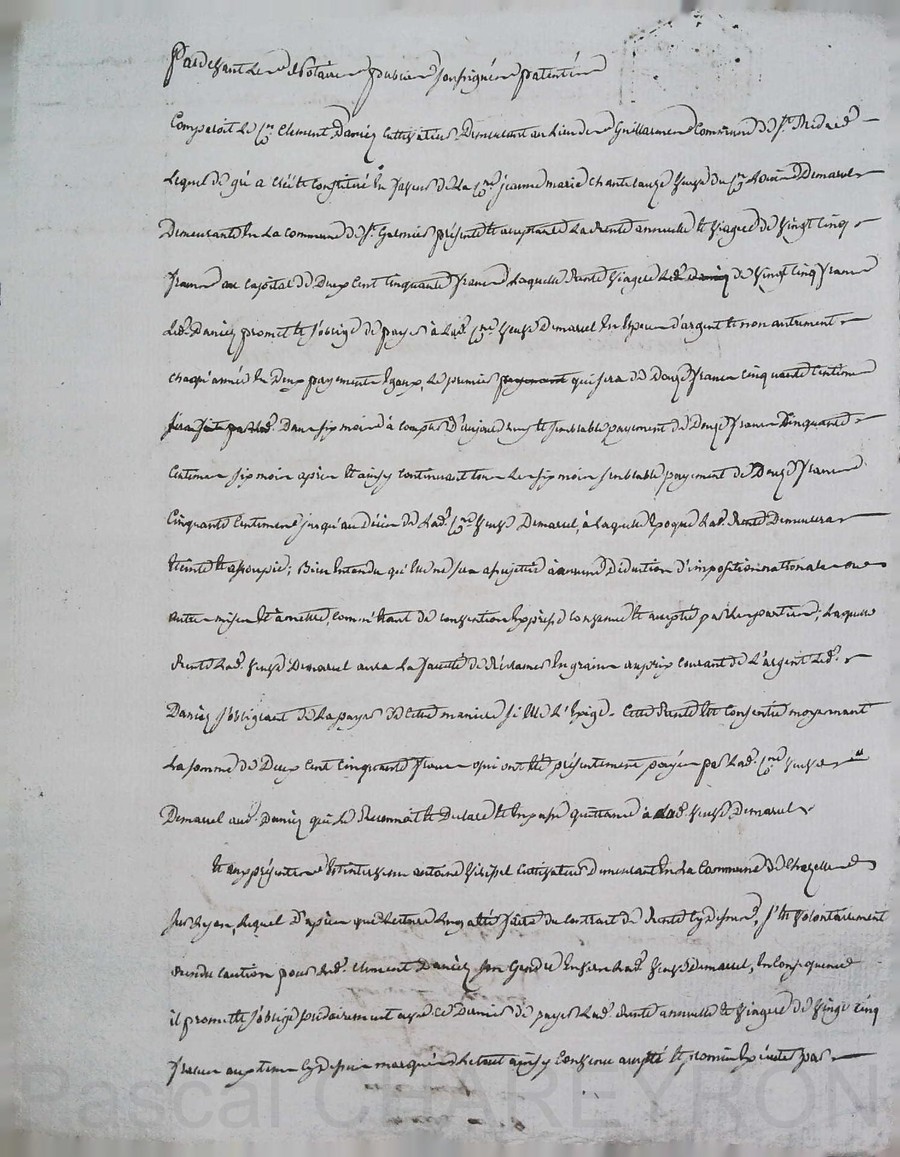 Pardevant les Notaires publics soussignés patentés
Comparoit le Cen Clement Daniez Cultivateur Demeurant au lieu de Guillarme Commune de St. Medard
Lequel de gré a créé et Constitué En faveur de La Cene jeanne marie Chantelauze veuve du Cen Demarel
Demeurante En La Commune de St. Galmier présente et acceptante La Rente annuelle et viagere de vingt Cinq
francs au Capital de Deux Cent Cinquante francs Laquelle Rente viagere Led. Daniez de vingt Cinq francs
Led. Daniez promet et s'oblige de payer à Lad. Cene veuve Demarel En Espece d'argent et non autrement
chaqu'année En Deux payements Egaux, Le premier payement qui sera de Douze francs Cinquante Centimes
sera fait par led. Dans six mois à compter d'aujourd'huy et semblable payement de Douze francs Cinquante
Centimes six mois après Et ainsy Continuant tous Les six mois semblable payement de Douze francs
Cinquante Centimes jusqu'au Décès de Lad. Cene veuve Demarel, à Laquelle Epoque Lad. Rente Demeurera
Eteinte Et assoupie; Bien Entendu qu'Elle ne sera assujettie à aucune Déduction d'impositions nationales ou
autres mises Et à mettre, Comm'Etant de Convention Expresse Convenue Et acceptée par les parties; Laquelle
Rente Lad. veuve Demarel aura La faculté de Réclamer En grains au prix Courant de L'argent Led.
Daniez s'obligeant de La payer de Cette maniere si Elle L'Exige. Cette Rente Est Consentie moyennant
La somme de Deux Cent Cinquante francs qui ont Eté présentement payés par Lad. Cene veuve
Demarel aud. Daniez qui Le Reconnait Et Declare Et En passe quittance à Lad. veuve Demarel
Et aux présentes Est intervenu antoine Cultivateur Demeurant En La Commune de Chazelles
sur Lyon, Lequel D'après que Lecture Luy a Eté faite du Contract de Rente Cy dessus, s'Est volontairement
Rendu Caution pour Led. Clement Daniez son Gendre Envers Lad. veuve Demarel, En Consequence
il promet Et s'oblige solidairement avec ce Dernier de payer Lad. Rente annuelle Et viagere de vingt Cinq
francs aux termes Cy dessus marqués Le tout ainsy Convenu accepté Et promis Executer par
Pascal CHAREYRON